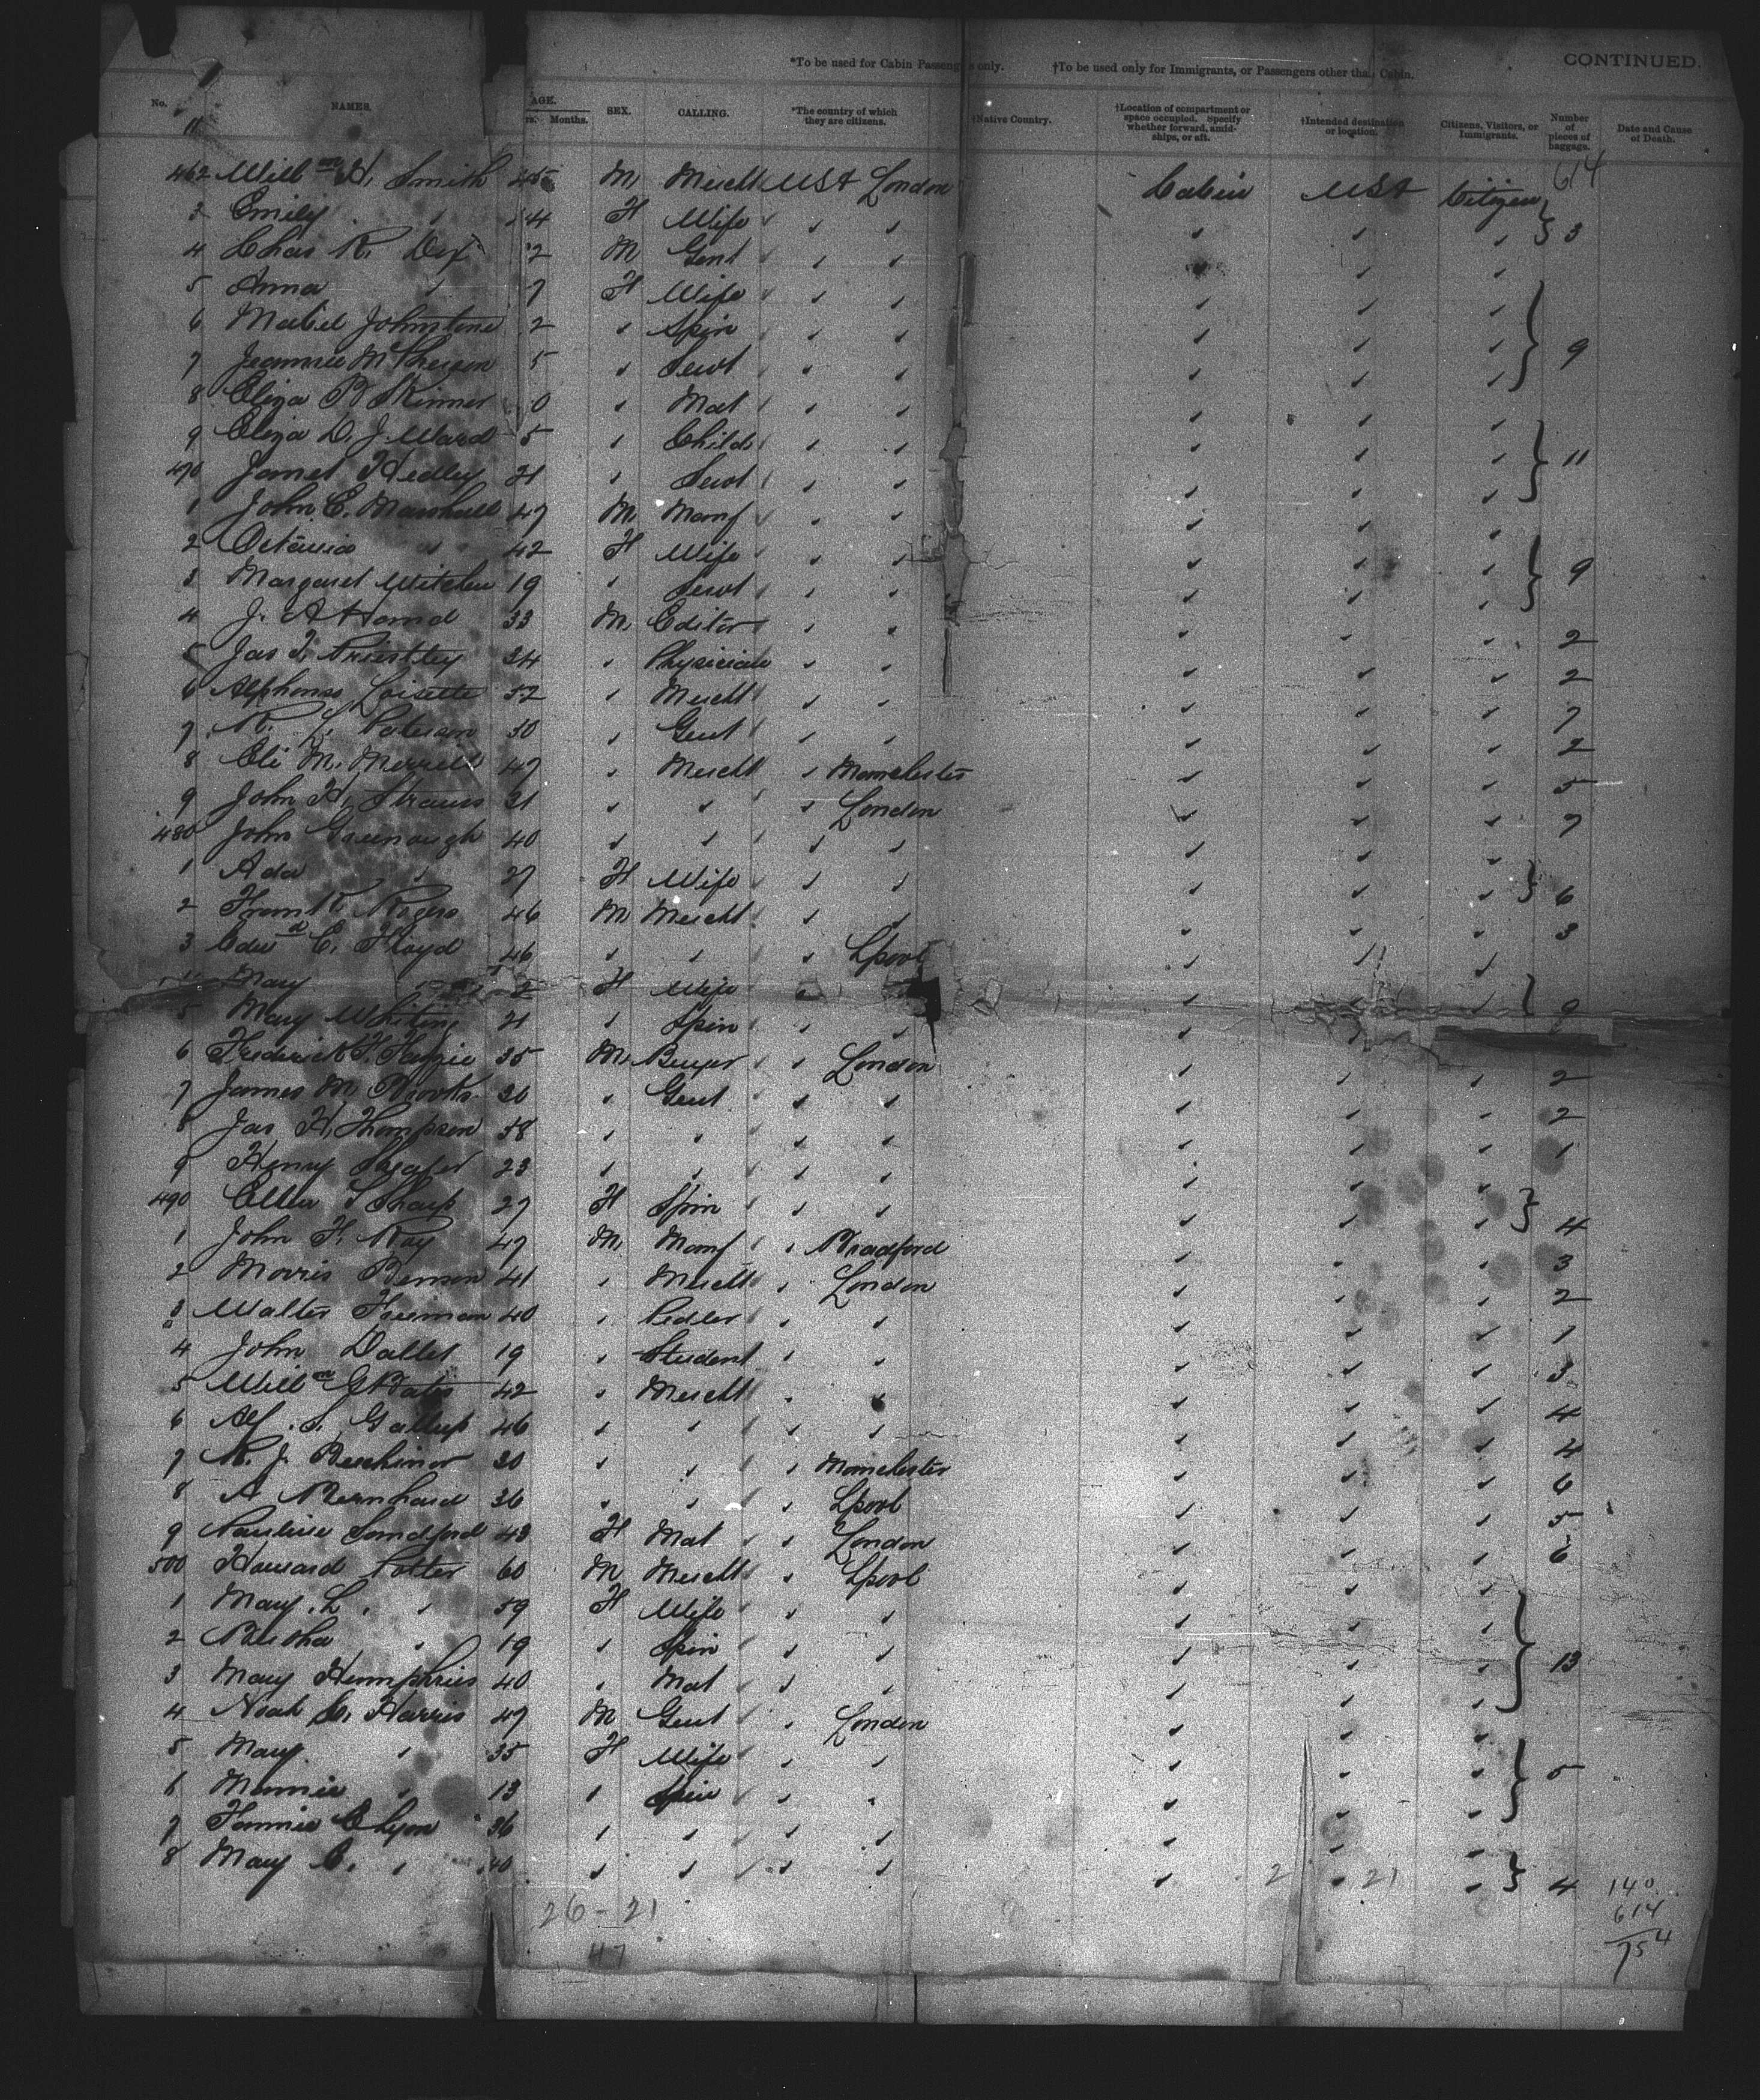 CONTINUED.
*To be used for Cabin Passengers only. †To be used only for Immigrants, or Passengers other than Cabin.
No. NAMES. AGE. Months. SEX. CALLING. *The country of which they are citizens. †Native Country. †Location of compartment or space occupied. Specify whether forward, amidships, or aft. †Intended destination or location. Citizens, Visitors, or Immigrants. Number of pieces of baggage. Date and Cause of Death.
614
462 Will m H. Smith M Mercht USA London Cabin USA Citizen
3 Emily " 44 F Wife " " " " " 3
4 Chas R. 2 M Gent " " " " "
5 Anna " 7 F Wife " " " " "
6 Mabel Johnstone 2 " Spin " " " " "
7 Jeannie McPherson 5 " Servt " " " " " 9
8 Eliza B Skinner 0 " Mat " " " " "
9 Eliza D. J. Ward 5 " Child " " " " "
470 Janet Hedley 21 " Servt " " " " " 11
1 John E. Marshall 47 M Manf " " " " "
2 Octavia " 42 F Wife " " " " "
3 Margaret Mitchell 19 " Servt " " " " " 9
4 J. A 33 M Editor " " " " " 2
5 Jas T. Priestley 34 " Physician " " " " " 2
6 Alphonso Loisette 52 " Mercht " " " " " 7
7 R. L. Paterson 30 " Gent " " " " " 2
8 Eli M. Merrill 47 " Mercht " Manchester " " " 5
9 John H. Strauss 31 " " " London " " " 7
480 John Greenough 40 " " " " " " "
1 Ada " 27 F Wife " " " " " 6
2 Frank R. Rogers 46 M Mercht " " " " " 3
3 Edw d E. Floyd 46 " " " Lpool " " "
Mary " F Wife " " " " " 9
5 Mary Whiting 21 " Spin " " " " "
6 Frederick F. 35 M Buyer " London " " " 2
7 James M. Brooks 30 " Gent " " " " " 2
8 Jas H. Thompson 38 " " " " " " " 1
9 Henry Sheafer 23 " " " " " " "
490 Ellen S Sharp 27 F Spin " " " " " 4
1 John F. Ray 47 M Manf " Bradford " " " 3
2 Morris Benson 41 " Mercht " London " " " 2
3 Walter Freeman 40 " Pedler " " " " " 1
4 John Dallet 19 " Student " " " " " 3
5 Will m G Bates 42 " Mercht " " " " " 4
6 Alf. S. Gallup 46 " " " " " " " 4
7 R. J. 30 " " " Manchester " " " 6
8 A Bernhard 36 " " " Lpool " " " 5
9 Pauline Sandford 43 F Mat " London " " " 6
500 Howard Potter 60 M Mercht " Lpool " " "
1 Mary. L. " 59 F Wife " " " " "
2 Bertha " 19 " Spin " " " " " 13
3 Mary Humphries 40 " Mat " " " " "
4 Noah C. Harris 47 M Gent " London " " "
5 Mary " 35 F Wife " " " " " 5
6 Mamie " 13 " Spin " " " " "
7 Fannie C Lyon 36 " " " " " " "
8 Mary C. " 40 " " " " " " " 4
2 21
26 - 21
47
140
614
754